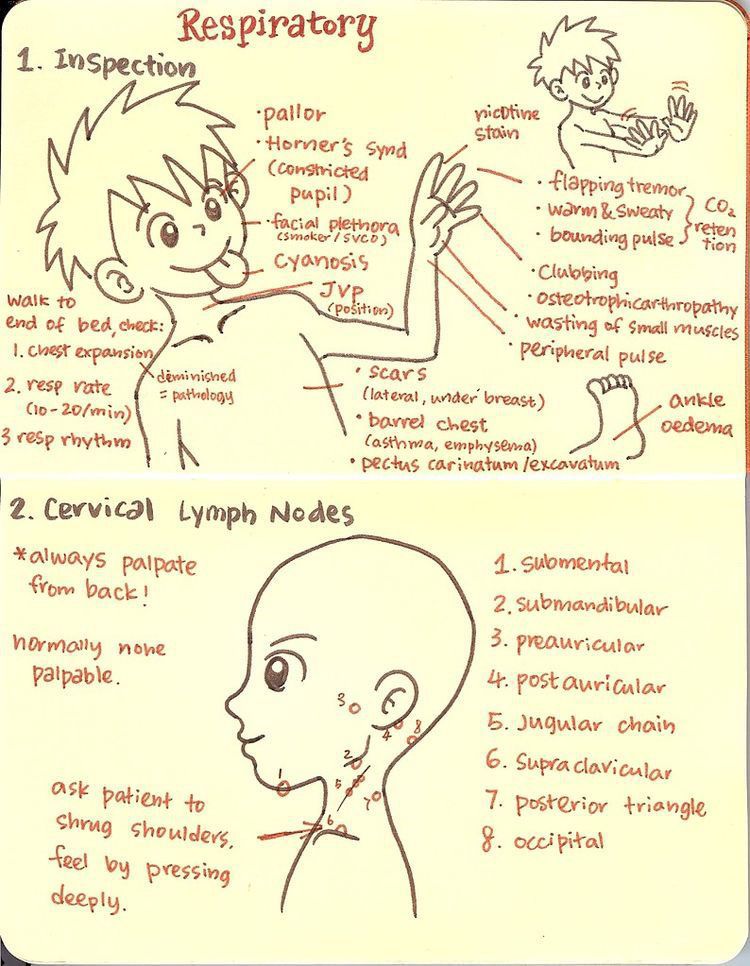 Respiratory
1. Inspection
· pallor
· Horner's Synd
(constricted
pupil)
· facial plethora
(smoker / SVCO)
Cyanosis
JVP
(position)
nicotine
stain
· flapping tremor
· warm & sweaty
· bounding pulse
CO₂
reten
tion
· clubbing
· osteotrophicarthropathy
· wasting of small muscles
· peripheral pulse
walk to
end of bed, check:
1. chest expansion
2. resp rate
(10-20/min)
3 resp rhythm
diminished
= pathology
· scars
(lateral, under breast)
· barrel chest
(asthma, emphysema)
· pectus carinatum/excavatum
ankle
oedema
2. Cervical Lymph Nodes
*always palpate
from back!
normally none
palpable.
ask patient to
shrug shoulders,
feel by pressing
deeply.
3
4
8
2
5
1
7
6
1. submental
2. submandibular
3. preauricular
4. postauricular
5. Jugular chain
6. Supraclavicular
7. posterior triangle
8. occipital